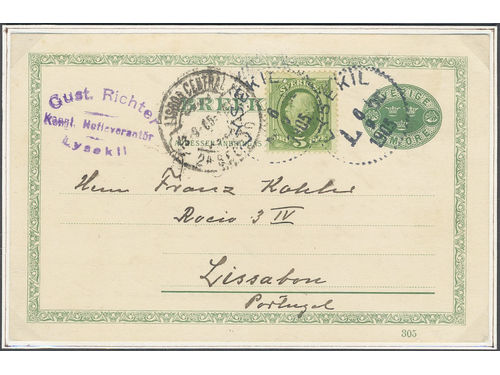 Gust. Richter
Kongl. Hofleverantör
Lysekil
LISBOA CENTRAL
BREFK
ADRESSEN ANBRINGAS
SVERIGE
5
LYSEKIL
1905
LYSEKIL
1905
SVERIGE
FEM ÖRE
Herrn Franz Kohlke
Rocio 3 IV
Lissabon
Portugal
305